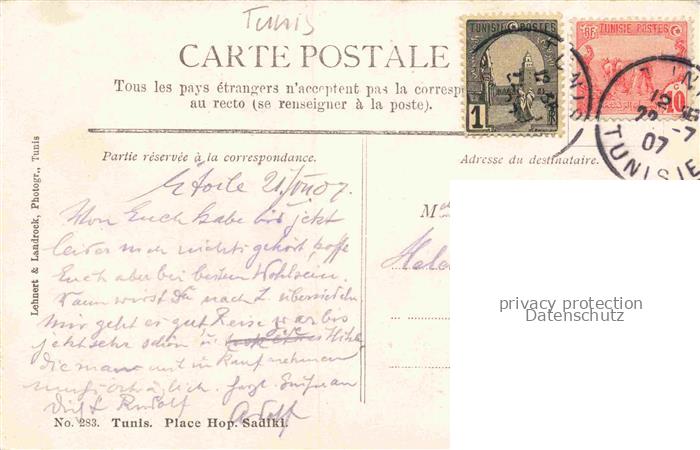 Tunis
CARTE POSTALE
Tous les pays étrangers n'acceptent pas la corresp
au recto (se renseigner à la poste).
TUNISIE POSTES
1
RF TUNISIE POSTES
10
TUNIS
12
22 -7
07
TUNISIE
Partie réservée à la correspondance.
Adresse du destinataire.
Lehnert & Landrock, Photogr., Tunis
Etoile 21/VII 07.
Von Euch habe bis jetzt
leider noch nichts gehört, hoffe
Euch aber bei bestem Wohlsein.
Wann wirst Du nach Z. übersiedeln
Mir geht es gut, Reise war bis
jetzt sehr schön u. die Hitze
die man mit in Kauf nehmen
muss erträglich. Gruss
Rudolf
Adolf
M
Hele
privacy protection
Datenschutz
No. 283. Tunis. Place Hop. Sadiki.